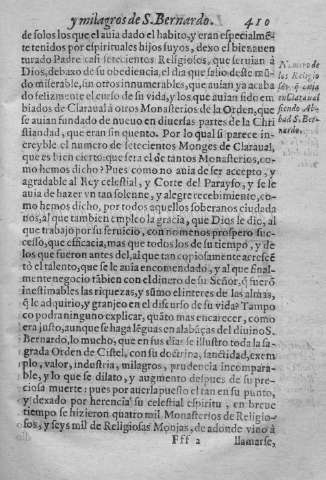 y milagros de S. Bernardo. 410
de solos los que el auia dado el habito, y eran especialmẽ
te tenidos por espirituales hijos suyos, dexo el bienauen
turado Padre casi setecientos Religiosos, que seruian à
Dios, debaxo de su obediencia, el dia que salio deste mũ
do miserable, sin otros innumerables, que auian ya acaba
do felizmente el curso de su vida, y los que auian sido em
biados de Claraual à otros Monasterios de la Orden, que
se auian fundado de nueuo en diuersas partes de la Chri
stiandad, que eran sin quento. Por lo qual si parece in-
creyble el numero de setecientos Monges de Claraual,
que es bien cierto: que sera el de tantos Monasterios, co-
mo hemos dicho? Pues como no auia de ser accepto, y
agradable al Rey celestial, y Corte del Parayso, y se le
auia de hazer vn tan solenne, y alegre recebimiento, co-
mo hemos dicho, por todos aquellos soberanos ciudada
nos, al que tambien empleo la gracia, que Dios le dio, al
que trabajo por su seruicio, con no menos prospero suc-
cesso, que efficacia, mas que todos los de su tiempo, y de
los que fueron antes del, al que tan copiosamente acrescẽ
tò el talento, que se le auia encomendado, y al que final-
mente negocio tãbien con el dinero de su Señor, q̃ fuerõ
inestimables las riquezas, y sumo el interes de las almas,
q̃ le adquirio, y granjeo en el discurso de su vida? Tampo
co podra ninguno explicar, quãto mas encarecer, como
era justo, aunque se haga lẽguas en alabãças del diuino S.
Bernardo, lo mucho, que en sus dias se illustro toda la sa-
grada Orden de Cistel, con su doctrina, sanctidad, exem
plo, valor, industria, milagros, prudencia incompara-
ble, y lo que se dilato, y augmento despues de su pre-
ciosa muerte: pues por auerla puesto el tan en su punto,
y dexado por herencia su celestial espiritu, en breue
tiempo se hizieron quatro mil Monasterios de Religio-
sos, y seys mil de Religiosas Monjas, de adonde vino à
Fff 2 llamarse,
Numero de
los Religio
sos, q̃ auia
en Claraual
siendo Ab-
bad S. Ber-
nardo.